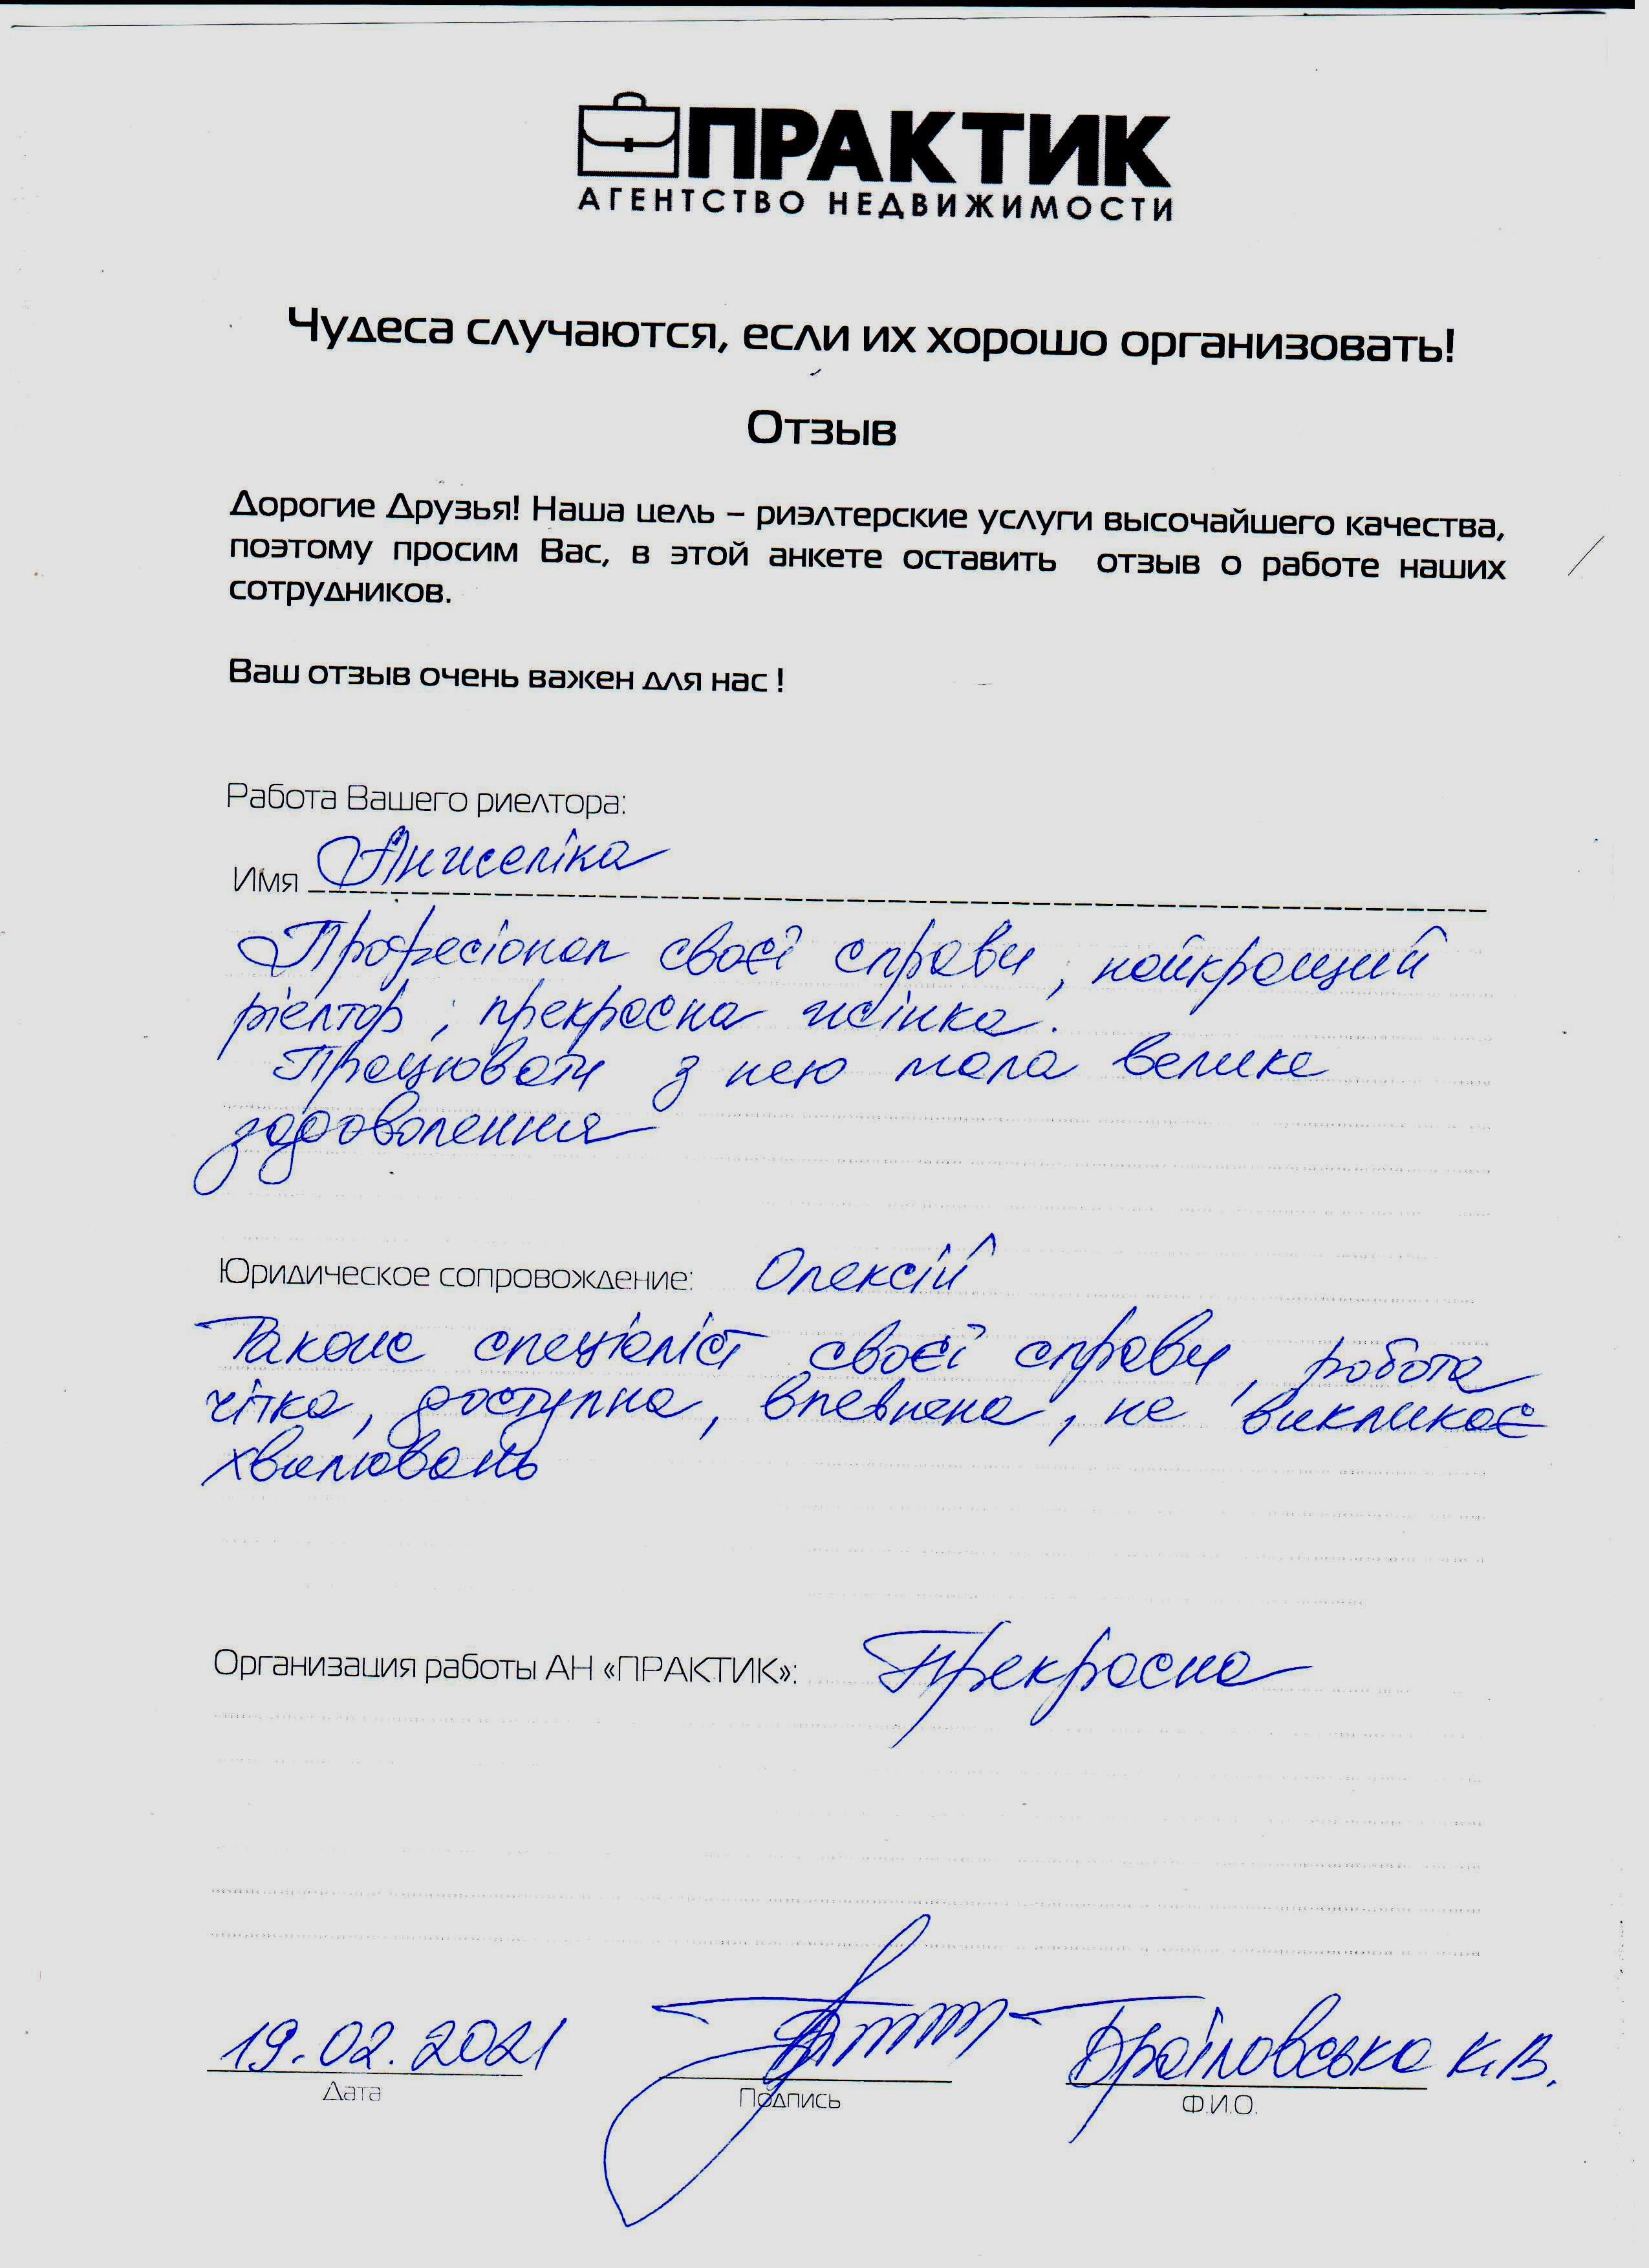 ПРАКТИК
АГЕНТСТВО НЕДВИЖИМОСТИ
Чудеса случаются, если их хорошо организовать!
Отзыв
Дорогие Друзья! Наша цель – риэлтерские услуги высочайшего качества,
поэтому просим Вас, в этой анкете оставить отзыв о работе наших
сотрудников.
Ваш отзыв очень важен для нас !
Работа Вашего риелтора:
Имя Анжеліка
Професіонал своєї справи, найкращий
ріелтор, прекрасна жінка.
Працювати з нею мала велике
задоволення
Юридическое сопровождение: Олексій
Також спеціаліст своєї справи, робота
чітка, доступна, впевнена, не викликає
хвилювань
Организация работы АН «ПРАКТИК»: Прекрасна
19.02.2021 Браїловська К.В.
Дата Подпись Ф.И.О.